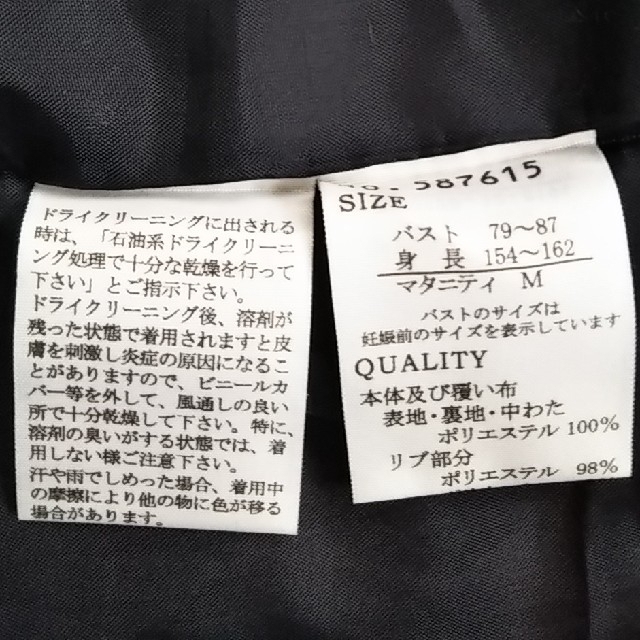 ドライクリーニングに出される
時は、「石油系ドライクリーニ
ング処理で十分な乾燥を行って
下さい」とご指示下さい。
ドライクリーニング後、溶剤が
残った状態で着用されますと皮
膚を刺激し炎症の原因になるこ
とがありますので、ビニールカ
バー等を外して、風通しの良い
所で十分乾燥して下さい。特に、
溶剤の臭いがする状態では、着
用しない様ご注意下さい。
汗や雨でしめった場合、着用中
の摩擦により他の物に色が移る
場合があります。
587615
SIZE
バスト 79〜87
身長 154〜162
マタニティ M
バストのサイズは
妊娠前のサイズを表示しています
QUALITY
本体及び覆い布
表地・裏地・中わた
ポリエステル 100%
リブ部分
ポリエステル 98%